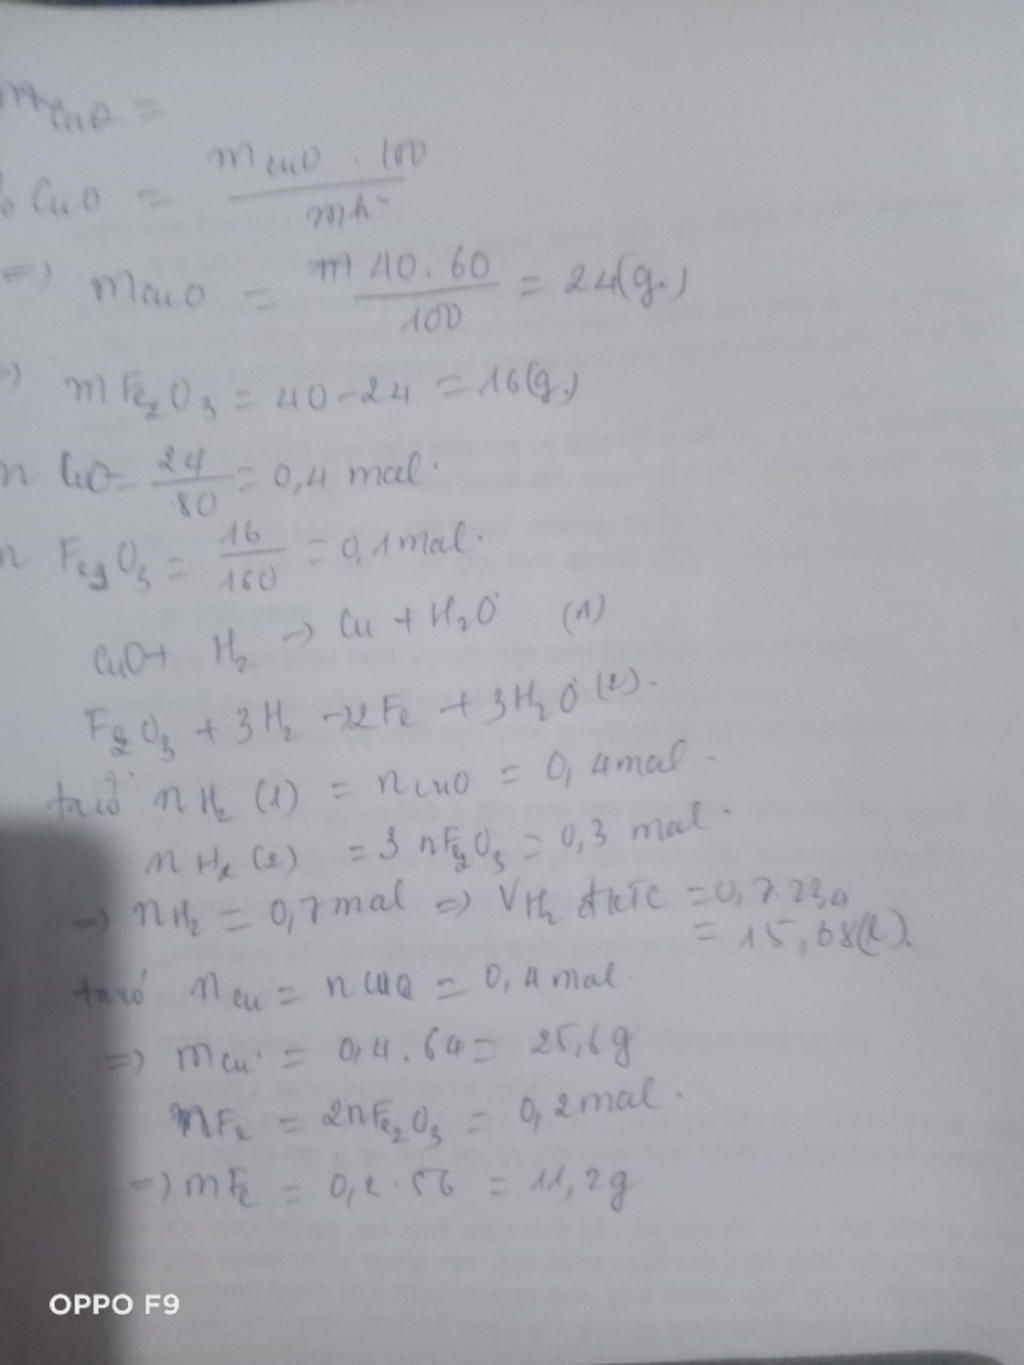 m CuO =
% CuO = mCuO . 100 / mh²
=> mCuO = 40.60 / 100 = 24(g.)
=> mFe2O3 = 40-24 = 16(g.)
n CuO = 24 / 80 = 0,4 mol.
n Fe2O3 = 16 / 160 = 0,1 mol.
CuO + H2 -> Cu + H2O (1)
Fe2O3 + 3H2 -> 2Fe + 3H2O (2).
ta có nH2 (1) = nCuO = 0,4 mol.
nH2 (2) = 3 nFe2O3 = 0,3 mol.
=> nH2 = 0,7 mol => VH2 đktc = 0,7.
= 15,68(l).
ta có nCu = nCuO = 0,4 mol.
=> mCu = 0,4.64 = 25,6g
nFe = 2nFe2O3 = 0,2 mol.
=> mFe = 0,2.56 = 11,2g
OPPO F9